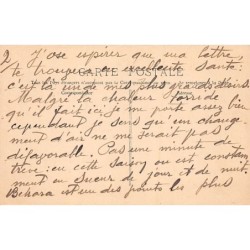 2 J'ose espérer que ma lettre
te trouvera en excellente santé:
CARTE POSTALE
c'est là un de mes plus grands désirs.
Correspondance
Malgré la chaleur torride
qu'il fait ici je me porte assez bien
cependant je sens qu'un change
ment d'air ne me serait pas
défavorable. Pas une minute de
trêve: en cette saison on est constam
ment en sueur de jour et de nuit.
est un des points les plus